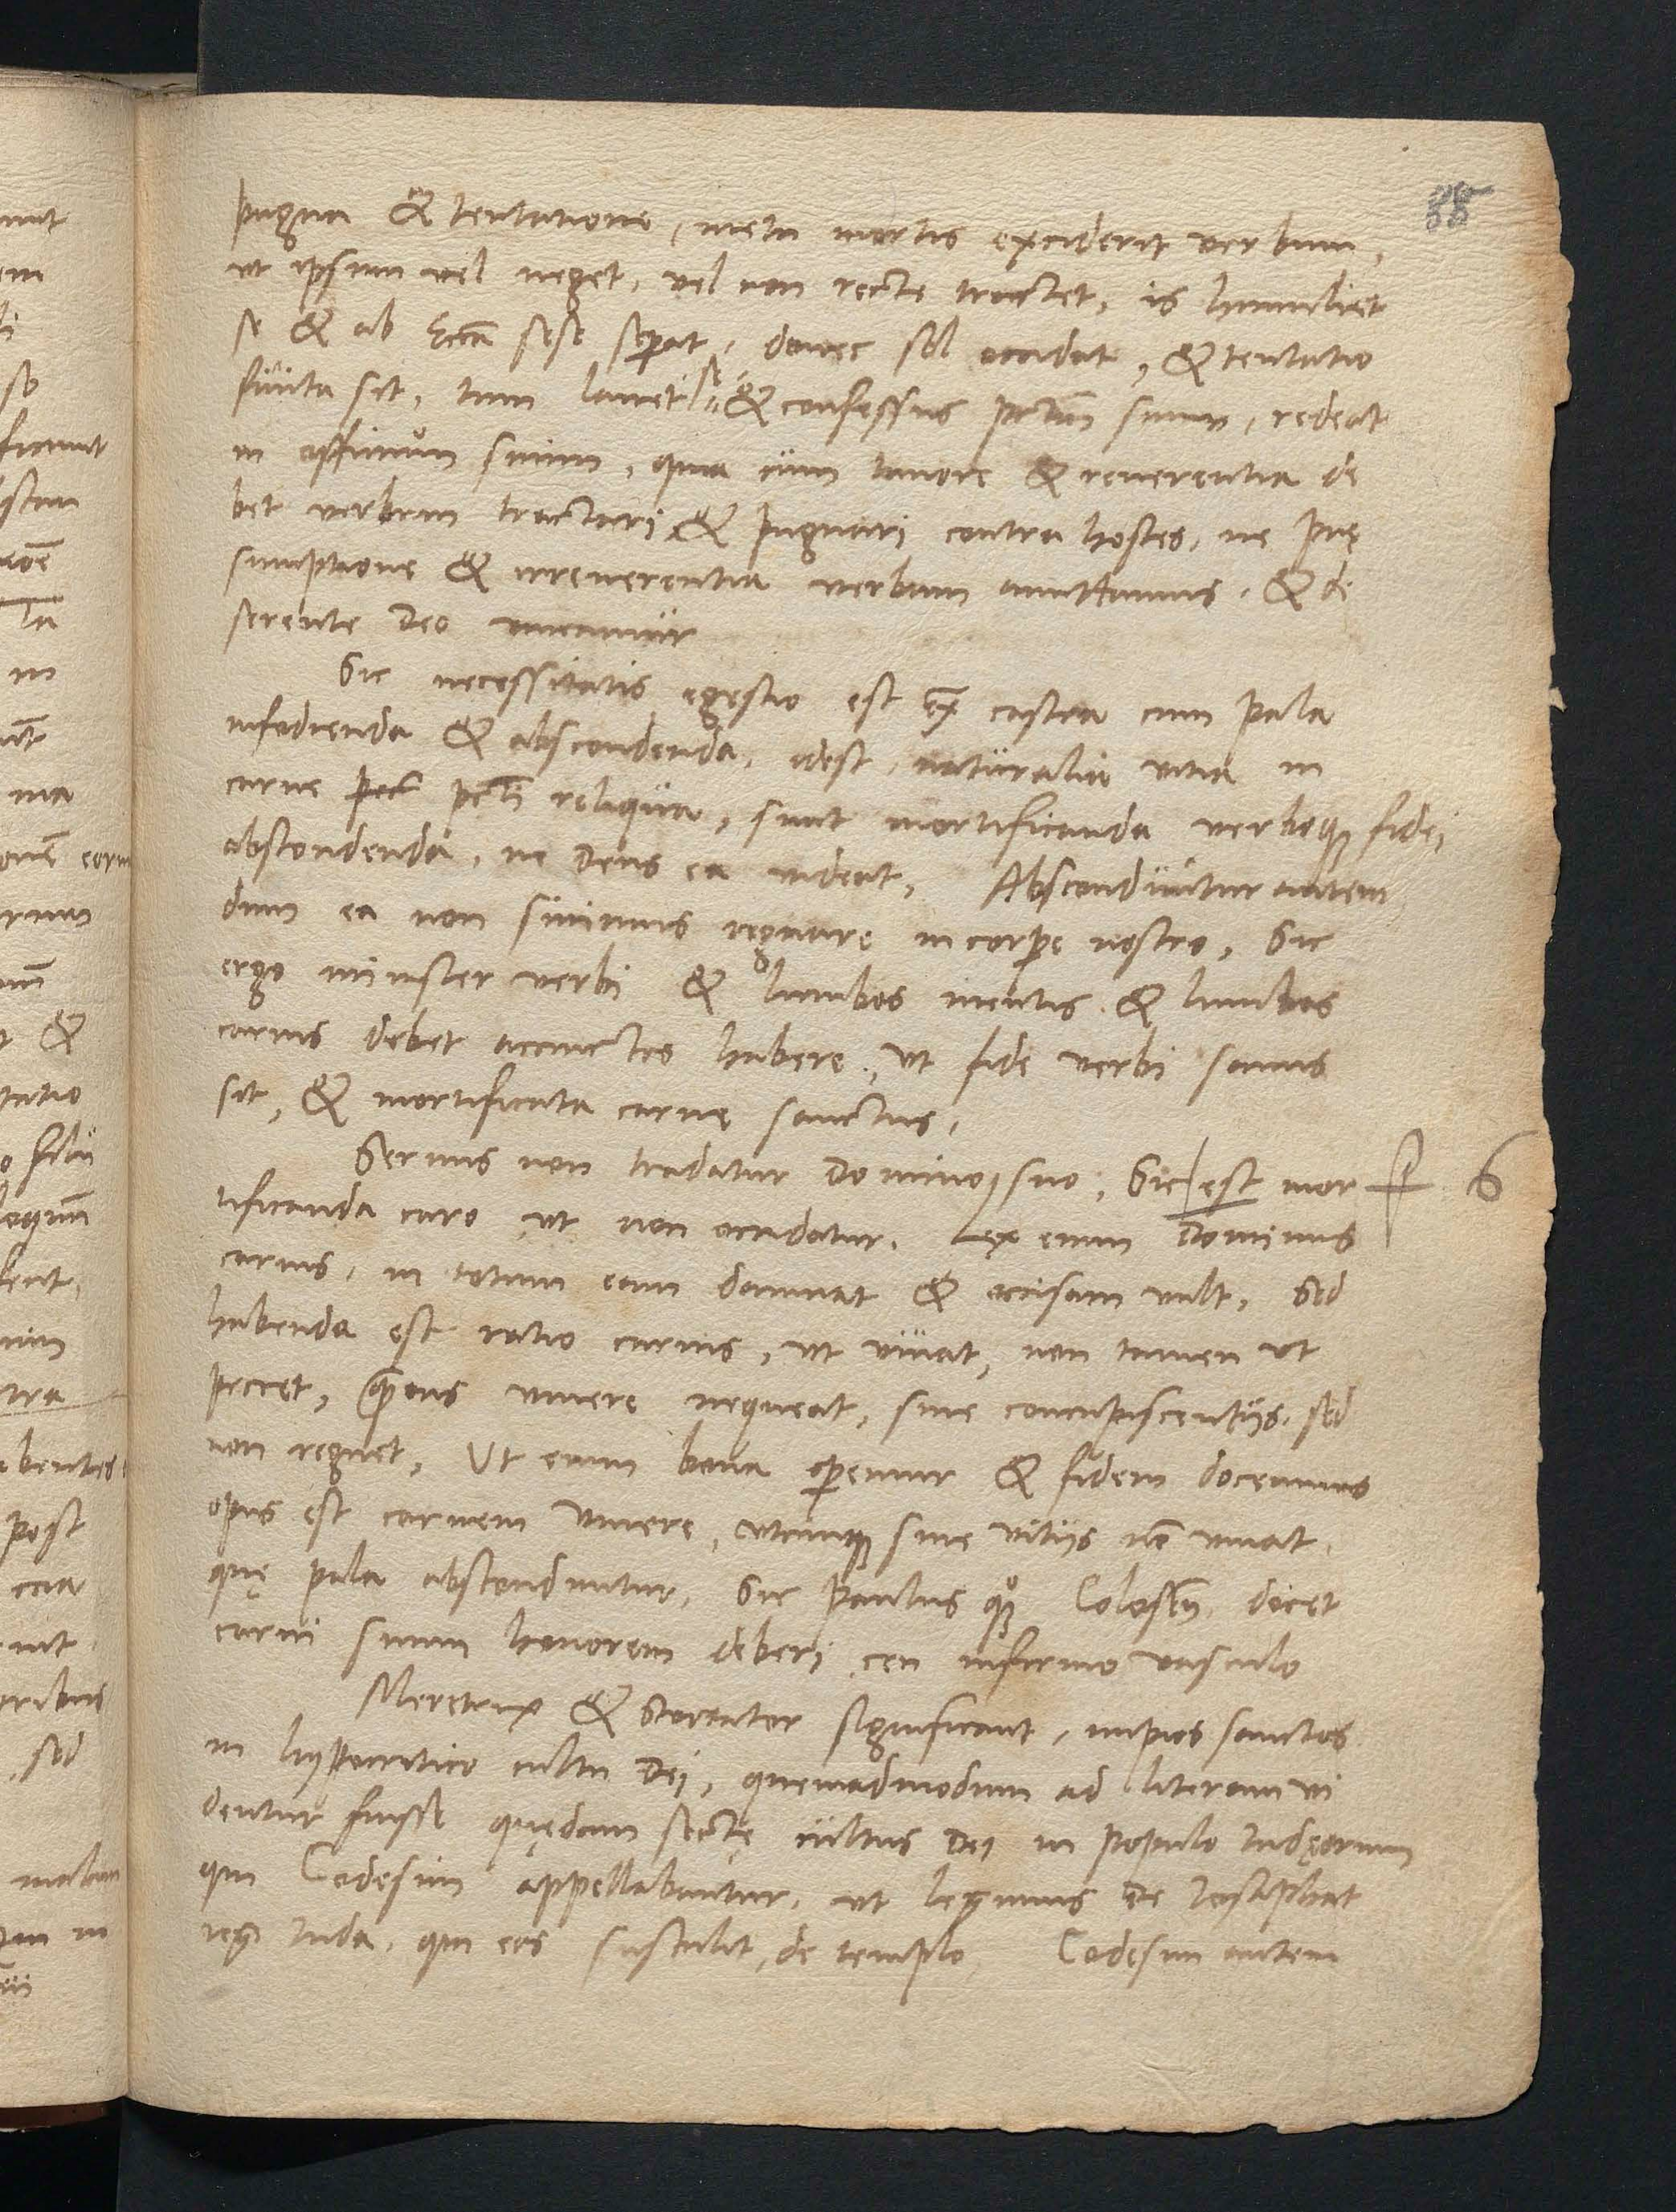 88
pugna & tentatione, metu mortis exciderit verbum,
ut ipsum vel neget, vel non recte tractet, is humiliet
se & ab Eccā sese sep̄at, donec sol occidat, & tentatio
finita sit, tum lavet se & confessus pctm̄ suum, redeat
in officium suum, quia cum timore & reverentia de
bet verbum tractari & pugnari contra hostes, ne pre
sumptione & irreverentia verbum amittamus, & de
serente Deo vincamur
Sic necessitatis egestio est ex castra cum pala
infodienda & abscondenda, idest, naturalia vitia in
carne pcti reliqua, sunt mortificanda verboq; fidei
abscondenda, ne Deus ea videat, Absconduntur autem
dum ea non sinimus regnare in corpe nostro, Sic
ergo minister verbi & lumbos mentis & lumbos
carnis debet accinctos habere, ut fide verbi sanus
sit, & mortificata carne sanctus,
Servus non tradatur Domino suo, Sic est mor 6
tificanda caro ut non occidatur. Lex enim Dominus
carnis, in totum eam damnat & occisam vult, Sed
habenda est ratio carnis, ut vivat, non tamen ut
peccet, vivere nequeat, sine concupiscentijs, sed
non regnet, Ut enim bona opemur & fidem doceamus
opus est carnem vivere, utcunq; sine vitijs nō vivat,
quę pala absconduntur, Sic Paulus quoq; Coloss docet
carni suum honorem deberi ceu infirmo vasculo
Meretrix & Scortator significant, impios sanctos
in hypocritico cultu Dei, quemadmodum ad literam vi
dentur fuisse quędam sectę cultus Dei in populo Iudęorum
qui Cadesim appellabantur, ut legimus de Iosaphat
rege Iuda, qui eos sustulit de templo, Cadesim autem